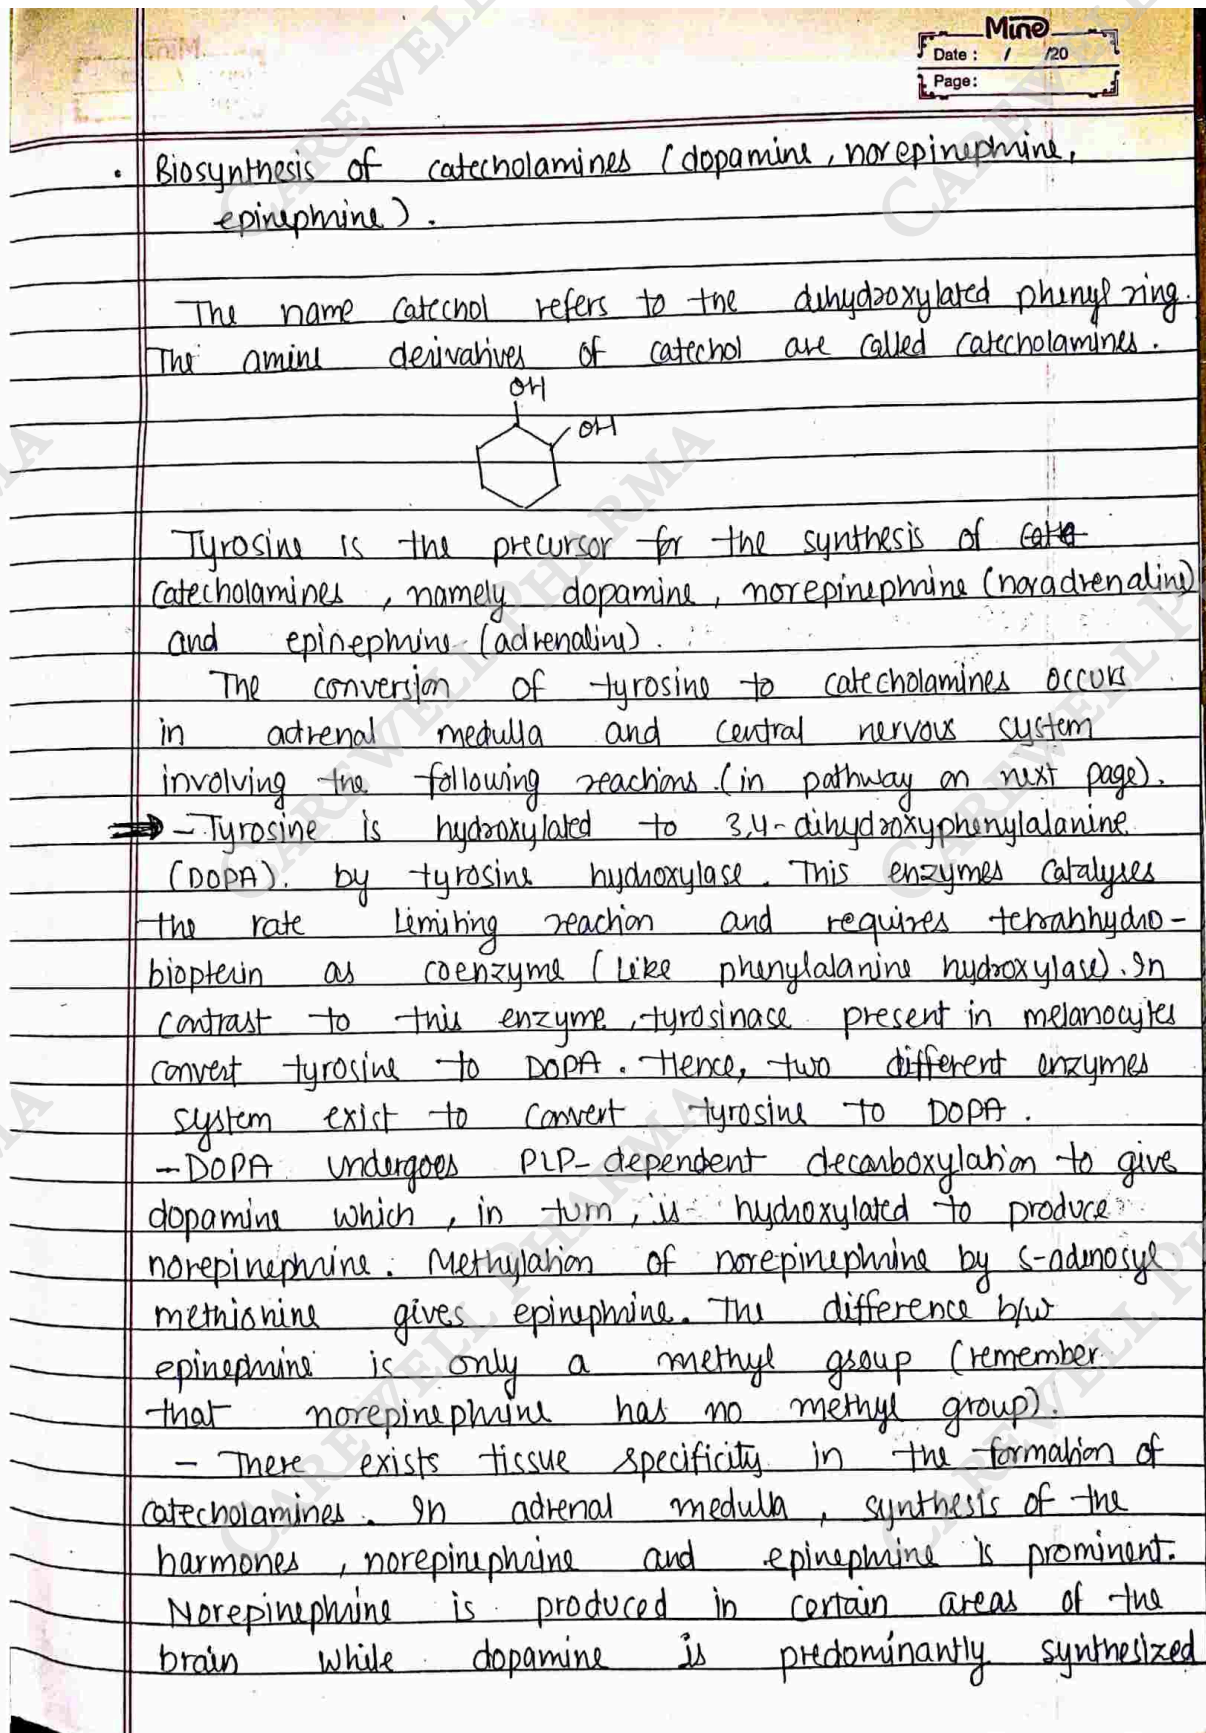 Mine
Date : / /20
Page:
• Biosynthesis of catecholamines (dopamine, norepinephrine,
epinephrine).
The name catechol refers to the dihydroxylated phenyl ring.
The amine derivatives of catechol are called catecholamines.
OH
OH
Tyrosine is the precursor for the synthesis of
catecholamines, namely dopamine, norepinephrine (noradrenaline)
and epinephrine (adrenaline).
The conversion of tyrosine to catecholamines occurs
in adrenal medulla and central nervous system
involving the following reactions (in pathway on next page).
⇒ - Tyrosine is hydroxylated to 3,4-dihydroxyphenylalanine
(DOPA). by tyrosine hydroxylase. This enzymes catalyses
the rate limiting reaction and requires tetrahydro-
biopterin as coenzyme (like phenylalanine hydroxylase). In
contrast to this enzyme, tyrosinase present in melanocytes
convert tyrosine to DOPA. Hence, two different enzymes
system exist to convert tyrosine to DOPA.
- DOPA undergoes PLP-dependent decarboxylation to give
dopamine which, in turn, is hydroxylated to produce
norepinephrine. Methylation of norepinephrine by S-adenosyl
methionine gives epinephrine. The difference b/w
epinephrine is only a methyl group (remember
that norepinephrine has no methyl group).
- There exists tissue specificity in the formation of
catecholamines. In adrenal medulla, synthesis of the
harmones, norepinephrine and epinephrine is prominent.
Norepinephrine is produced in certain areas of the
brain while dopamine is predominantly synthesized
CAREWELL PHARMA